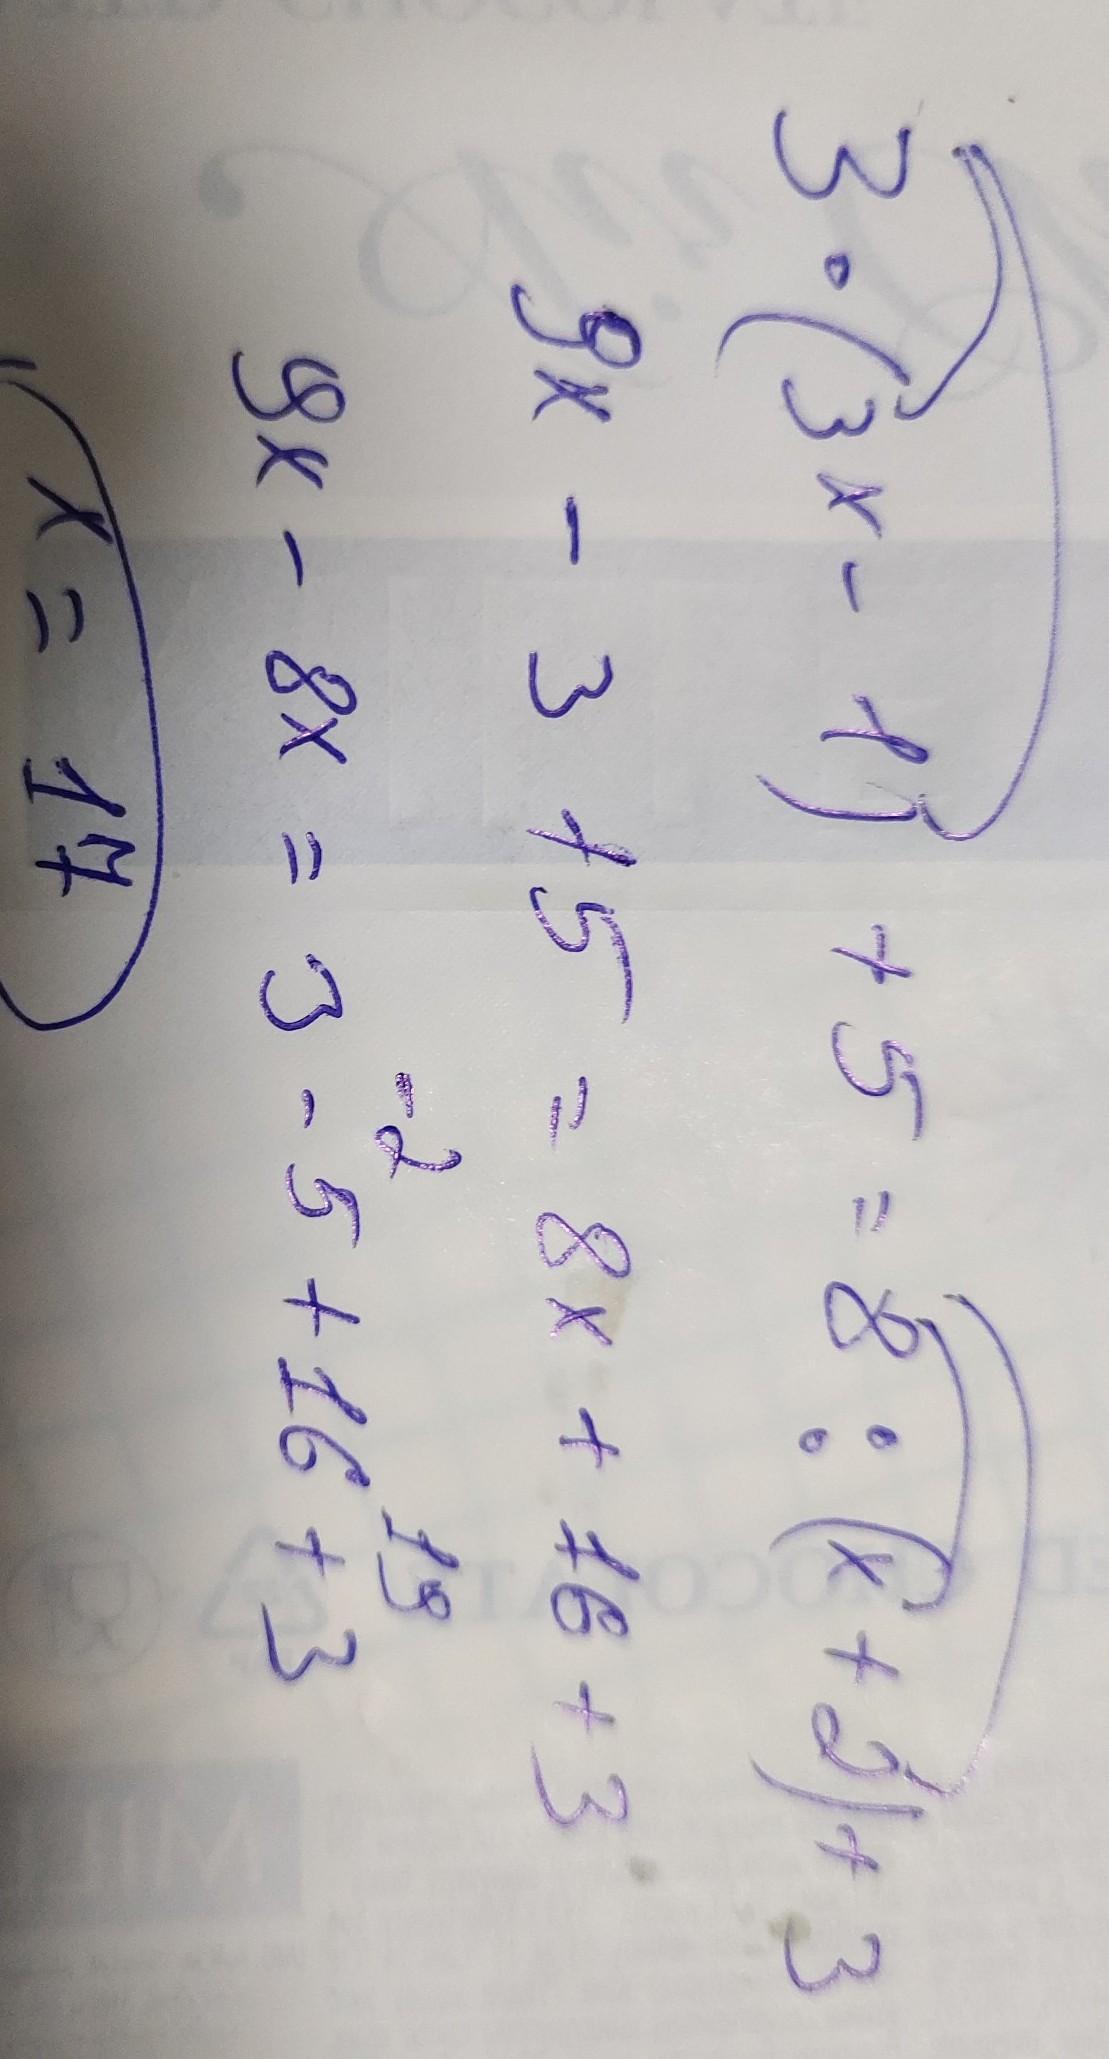 3·(3x-1)+5=8:(x+2)+3
9x-3+5=8x+16+3
-2 19
9x-8x=3-5+16+3
x=17